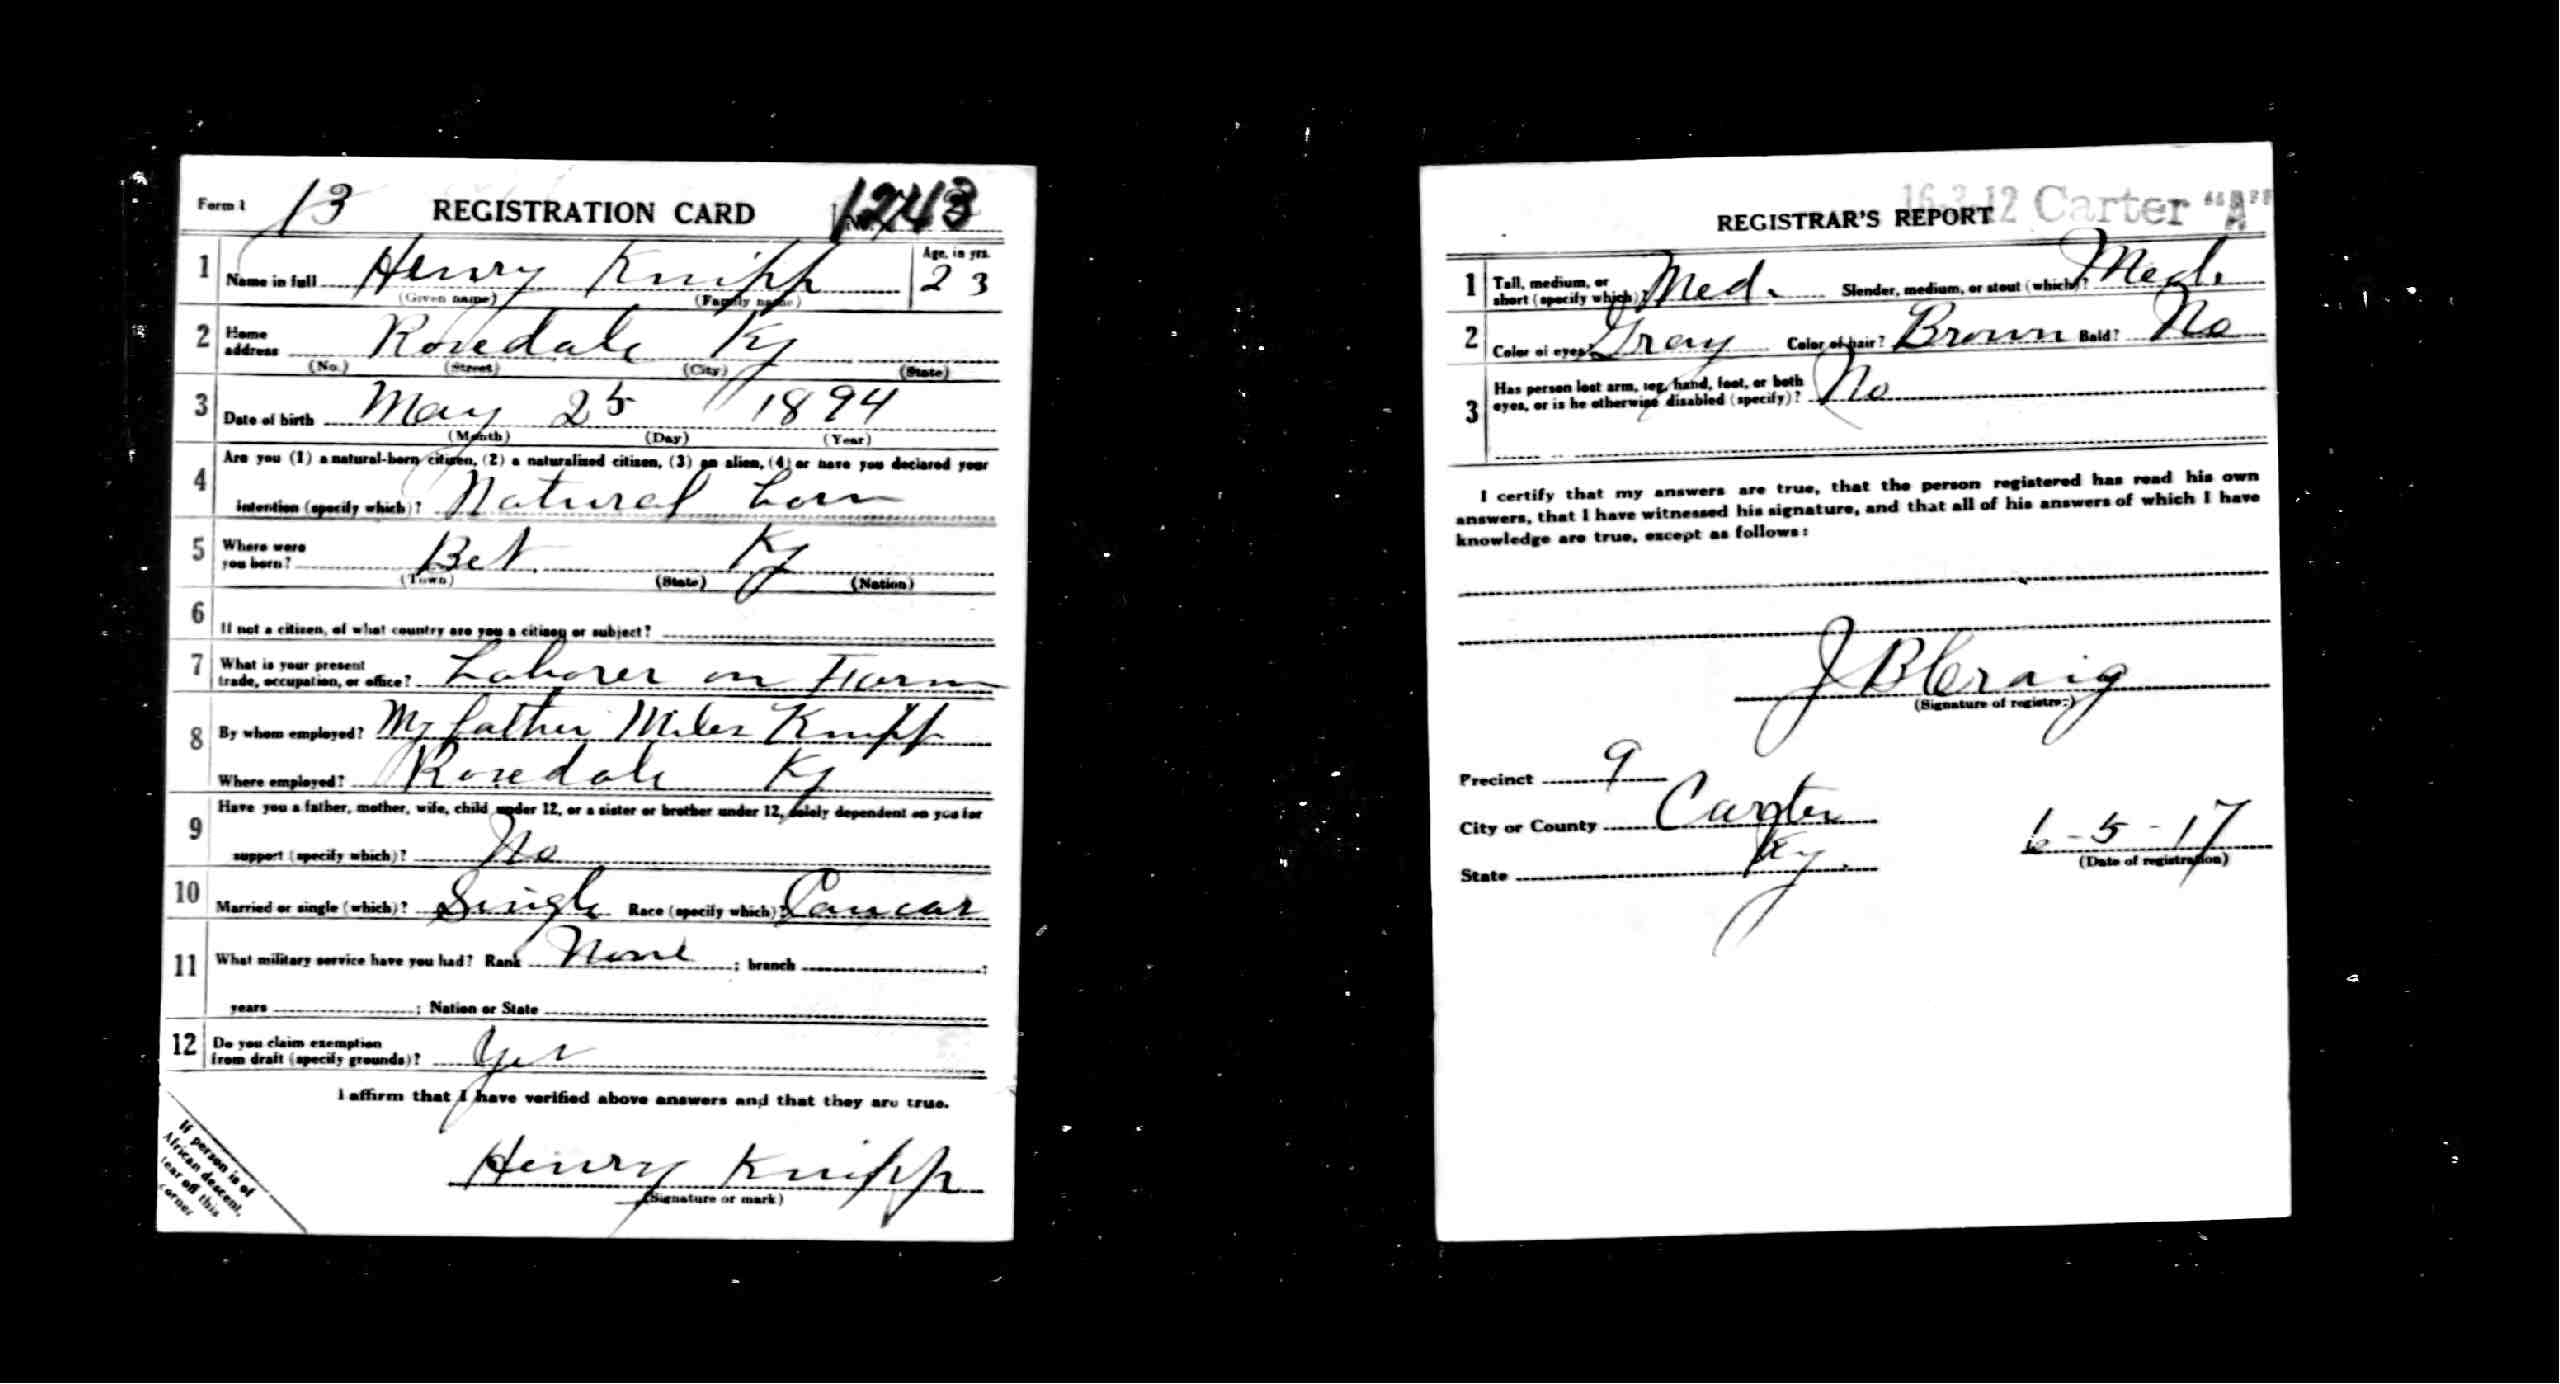 Form 1 13 REGISTRATION CARD No. 1243
1 Name in full Henry Knipp Age, in yrs. 23
(Given name) (Family name)
2 Home address Rosedale Ky
(No.) (Street) (City) (State)
3 Date of birth May 25 1894
(Month) (Day) (Year)
4 Are you (1) a natural-born citizen, (2) a naturalized citizen, (3) an alien, (4) or have you declared your
intention (specify which)? Natural born
5 Where were
you born? Bet Ky
(Town) (State) (Nation)
6 If not a citizen, of what country are you a citizen or subject?
7 What is your present
trade, occupation, or office? Laborer on Farm
8 By whom employed? My father Miles Knipp
Where employed? Rosedale Ky
9 Have you a father, mother, wife, child under 12, or a sister or brother under 12, solely dependent on you for
support (specify which)? No
10 Married or single (which)? Single Race (specify which)? Caucas
11 What military service have you had? Rank None ; branch ;
years ; Nation or State
12 Do you claim exemption
from draft (specify grounds)? Yes
I affirm that I have verified above answers and that they are true.
Henry Knipp
(Signature or mark)
If person is of
African descent,
tear off this
corner
16-3-12 Carter "A"
REGISTRAR'S REPORT
1 Tall, medium, or
short (specify which) Med. Slender, medium, or stout (which)? Med.
2 Color of eyes? Gray Color of hair? Brown Bald? No
3 Has person lost arm, leg, hand, foot, or both
eyes, or is he otherwise disabled (specify)? No
I certify that my answers are true, that the person registered has read his own
answers, that I have witnessed his signature, and that all of his answers of which I have
knowledge are true, except as follows:
J B Craig
(Signature of registrar)
Precinct 9
City or County Carter
State Ky.
6-5-17
(Date of registration)